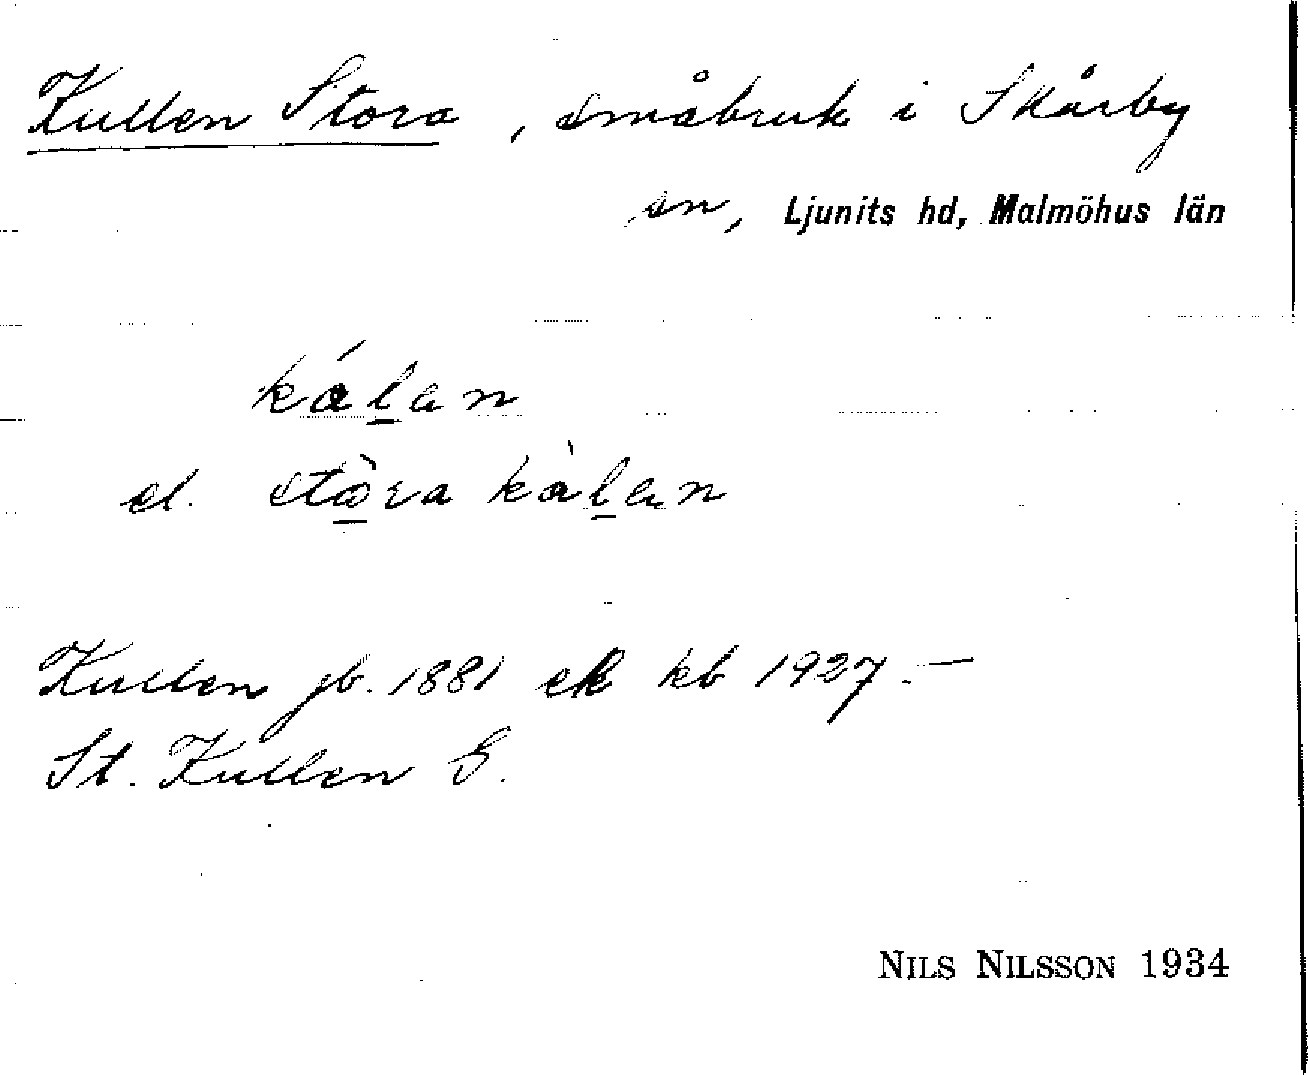 Kullen Stora, småbruk i Skårby
sn, Ljunits hd, Malmöhus län
kálan
el. stòra kàlan
Kullen jb. 1881 ek kb 1927. —
St. Kullen G.
NILS NILSSON 1934